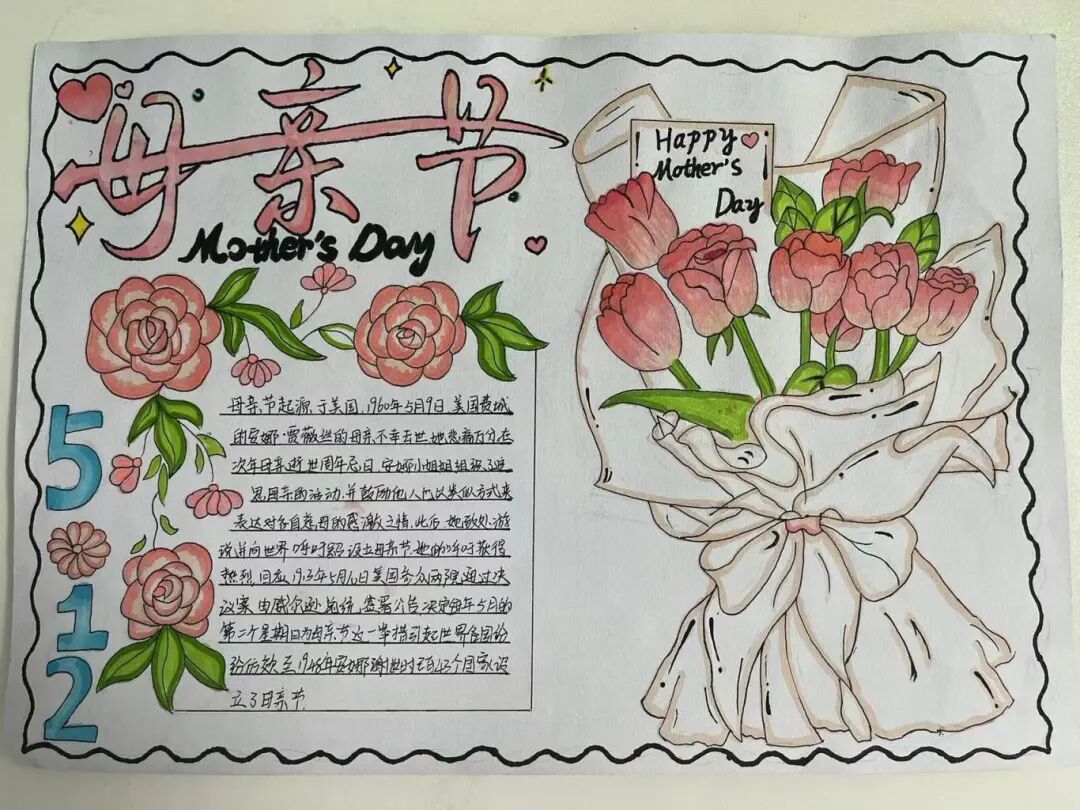 母亲节
Mother's Day
Happy
Mother's
Day
5
12
母亲节起源于美国,1960年5月9日美国费城
的安娜·贾薇丝的母亲不幸去世,她悲痛万分在
次年母亲逝世周年忌日,安娜小姐组织了追
思母亲的活动,并鼓励他人也以类似方式来
表达对各自慈母的感激之情,此后,她到处游
说并向世界呼吁绍设立母亲节,她的呼吁获得
热烈回应,1913年5月10日美国参众两院,通过决
议案,由威尔逊总统,签署公告决定每年5月的
第二个星期日为母亲节这一举措引起世界各国纷
纷仿效至1948年安娜谢世时已有43个国家设
立了母亲节